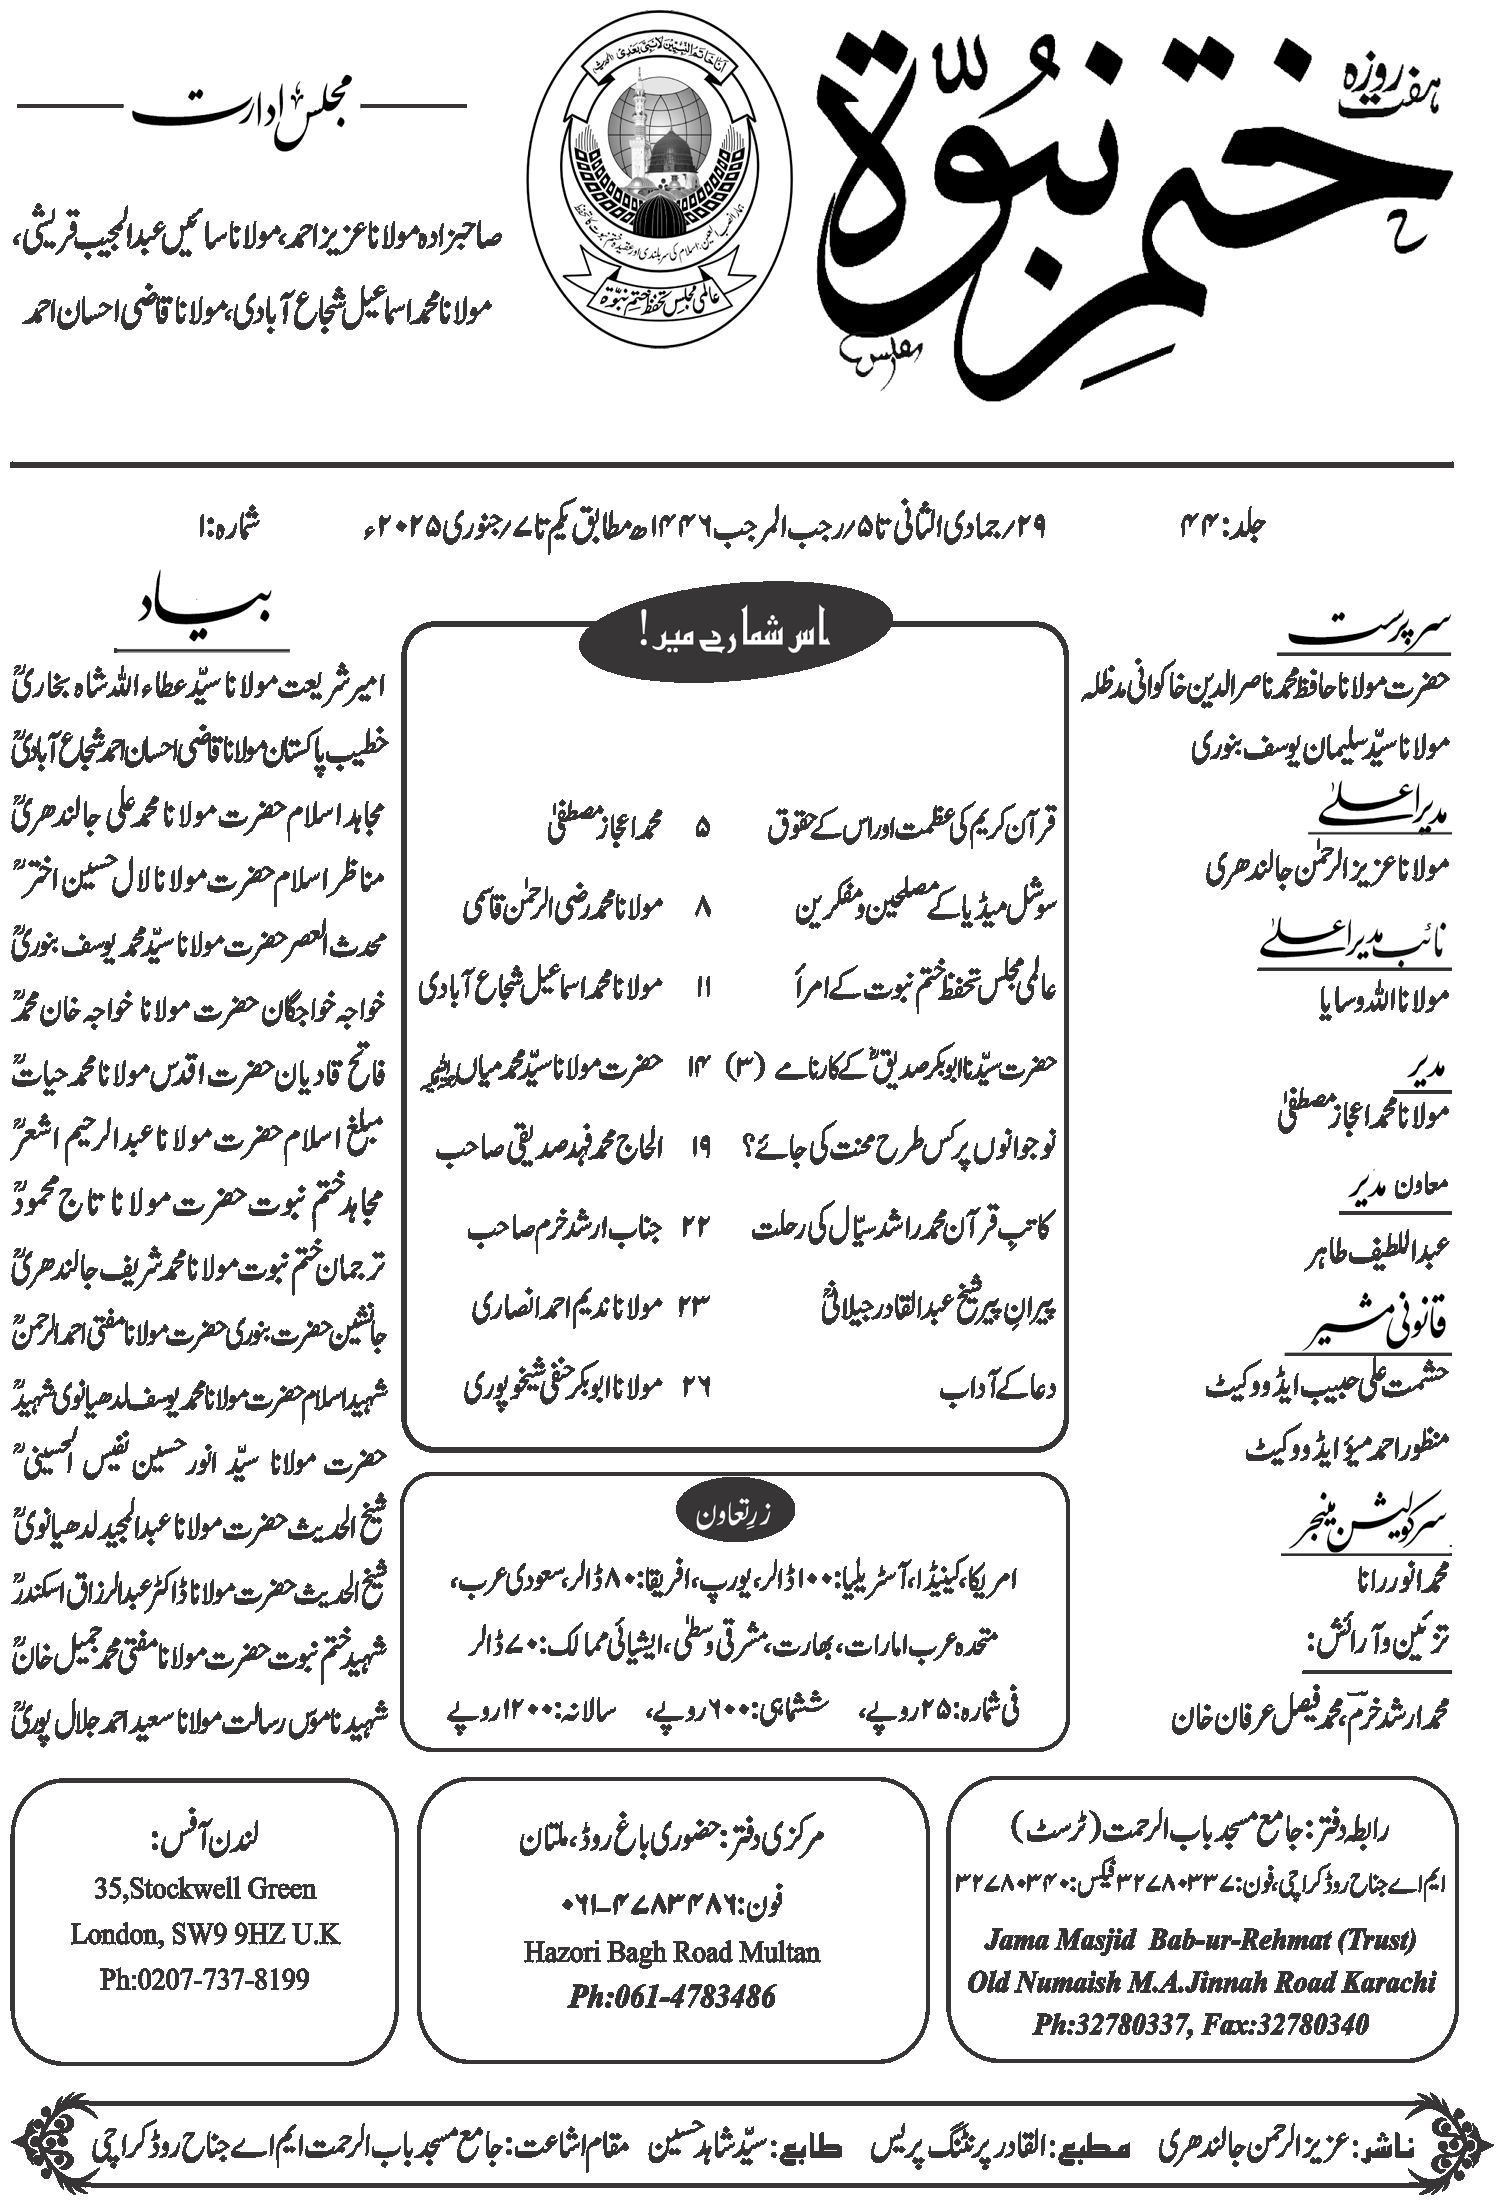 ہفت روزہ
ختم نبوّۃ
انا خاتم النبیین لا نبی بعدی
عالمی مجلس تحفظ ختم نبوّۃ
مجلس ادارت
صاحبزادہ مولانا عزیز احمد، مولانا سائیں عبدالمجیب قریشی،
مولانا محمد اسماعیل شجاع آبادی، مولانا قاضی احسان احمد
جلد: ۴۴
۲۹؍جمادی الثانی تا ۵؍رجب المرجب ۱۴۴۶ھ مطابق یکم تا ۷؍جنوری ۲۰۲۵ء
شمارہ: ۱
سرپرست
حضرت مولانا حافظ محمد ناصر الدین خاکوانی مدظلہ
مولانا سیّد سلیمان یوسف بنوری
مدیر اعلےٰ
مولانا عزیز الرحمٰن جالندھری
نائب مدیر اعلےٰ
مولانا اللہ وسایا
مدیر
مولانا محمد اعجاز مصطفیٰ
معاون مدیر
عبداللطیف طاہر
قانونی مشیر
حشمت علی حبیب ایڈووکیٹ
منظور احمد میؤ ایڈووکیٹ
سرکولیشن مینجر
محمد انور رانا
تزئین و آرائش:
محمد ارشد خرم، محمد فیصل عرفان خان
اس شمارے میں!
قرآن کریم کی عظمت اور اس کے حقوق ۵ محمد اعجاز مصطفیٰ
سوشل میڈیا کے مصلحین و مفکرین ۸ مولانا محمد رضی الرحمٰن قاسمی
عالمی مجلس تحفظ ختم نبوت کے امرأ ۱۱ مولانا محمد اسماعیل شجاع آبادی
حضرت سیّدنا ابوبکر صدیقؓ کے کارنامے (۳) ۱۴ حضرت مولانا سیّد محمد میاںؒ
نوجوانوں پر کس طرح محنت کی جائے؟ ۱۹ الحاج محمد فہد صدیقی صاحب
کاتبِ قرآن محمد راشد سیّال کی رحلت ۲۲ جناب ارشد خرم صاحب
پیرانِ پیر شیخ عبدالقادر جیلانیؒ ۲۳ مولانا ندیم احمد انصاری
دعا کے آداب ۲۶ مولانا ابوبکر حنفی شیخوپوری
زرِتعاون
امریکا، کینیڈا، آسٹریلیا: ۱۰۰ ڈالر، یورپ، افریقا: ۸۰ ڈالر، سعودی عرب،
متحدہ عرب امارات، بھارت، مشرقِ وسطیٰ، ایشیائی ممالک: ۷۰ ڈالر
فی شمارہ: ۲۵ روپے، ششماہی: ۶۰۰ روپے، سالانہ: ۱۲۰۰ روپے
بیاد
امیر شریعت مولانا سیّد عطاء اللہ شاہ بخاریؒ
خطیب پاکستان مولانا قاضی احسان احمد شجاع آبادیؒ
مجاہد اسلام حضرت مولانا محمد علی جالندھریؒ
مناظر اسلام حضرت مولانا لال حسین اخترؒ
محدث العصر حضرت مولانا سیّد محمد یوسف بنوریؒ
خواجہ خواجگان حضرت مولانا خواجہ خان محمدؒ
فاتح قادیان حضرت اقدس مولانا محمد حیاتؒ
مبلغ اسلام حضرت مولانا عبدالرحیم اشعرؒ
مجاہد ختم نبوت حضرت مولانا تاج محمودؒ
ترجمان ختم نبوت مولانا محمد شریف جالندھریؒ
جانشین حضرت بنوری حضرت مولانا مفتی احمد الرحمنؒ
شہید اسلام حضرت مولانا محمد یوسف لدھیانوی شہیدؒ
حضرت مولانا سیّد انور حسین نفیس الحسینیؒ
شیخ الحدیث حضرت مولانا عبدالمجید لدھیانویؒ
شیخ الحدیث حضرت مولانا ڈاکٹر عبدالرزاق اسکندرؒ
شہید ختم نبوت حضرت مولانا مفتی محمد جمیل خانؒ
شہید ناموس رسالت مولانا سعید احمد جلال پوریؒ
رابطہ دفتر: جامع مسجد باب الرحمت (ٹرسٹ)
ایم اے جناح روڈ کراچی، فون: ۳۲۷۸۰۳۳۷ فیکس: ۳۲۷۸۰۳۴۰
Jama Masjid Bab-ur-Rehmat (Trust)
Old Numaish M.A.Jinnah Road Karachi
Ph:32780337, Fax:32780340
مرکزی دفتر: حضوری باغ روڈ، ملتان
فون: ۰۶۱-۴۷۸۳۴۸۶
Hazori Bagh Road Multan
Ph:061-4783486
لندن آفس:
35,Stockwell Green
London, SW9 9HZ U.K
Ph:0207-737-8199
ناشر: عزیز الرحمن جالندھری مطبع: القادر پرنٹنگ پریس طابع: سیّد شاہد حسین مقام اشاعت: جامع مسجد باب الرحمت ایم اے جناح روڈ کراچی